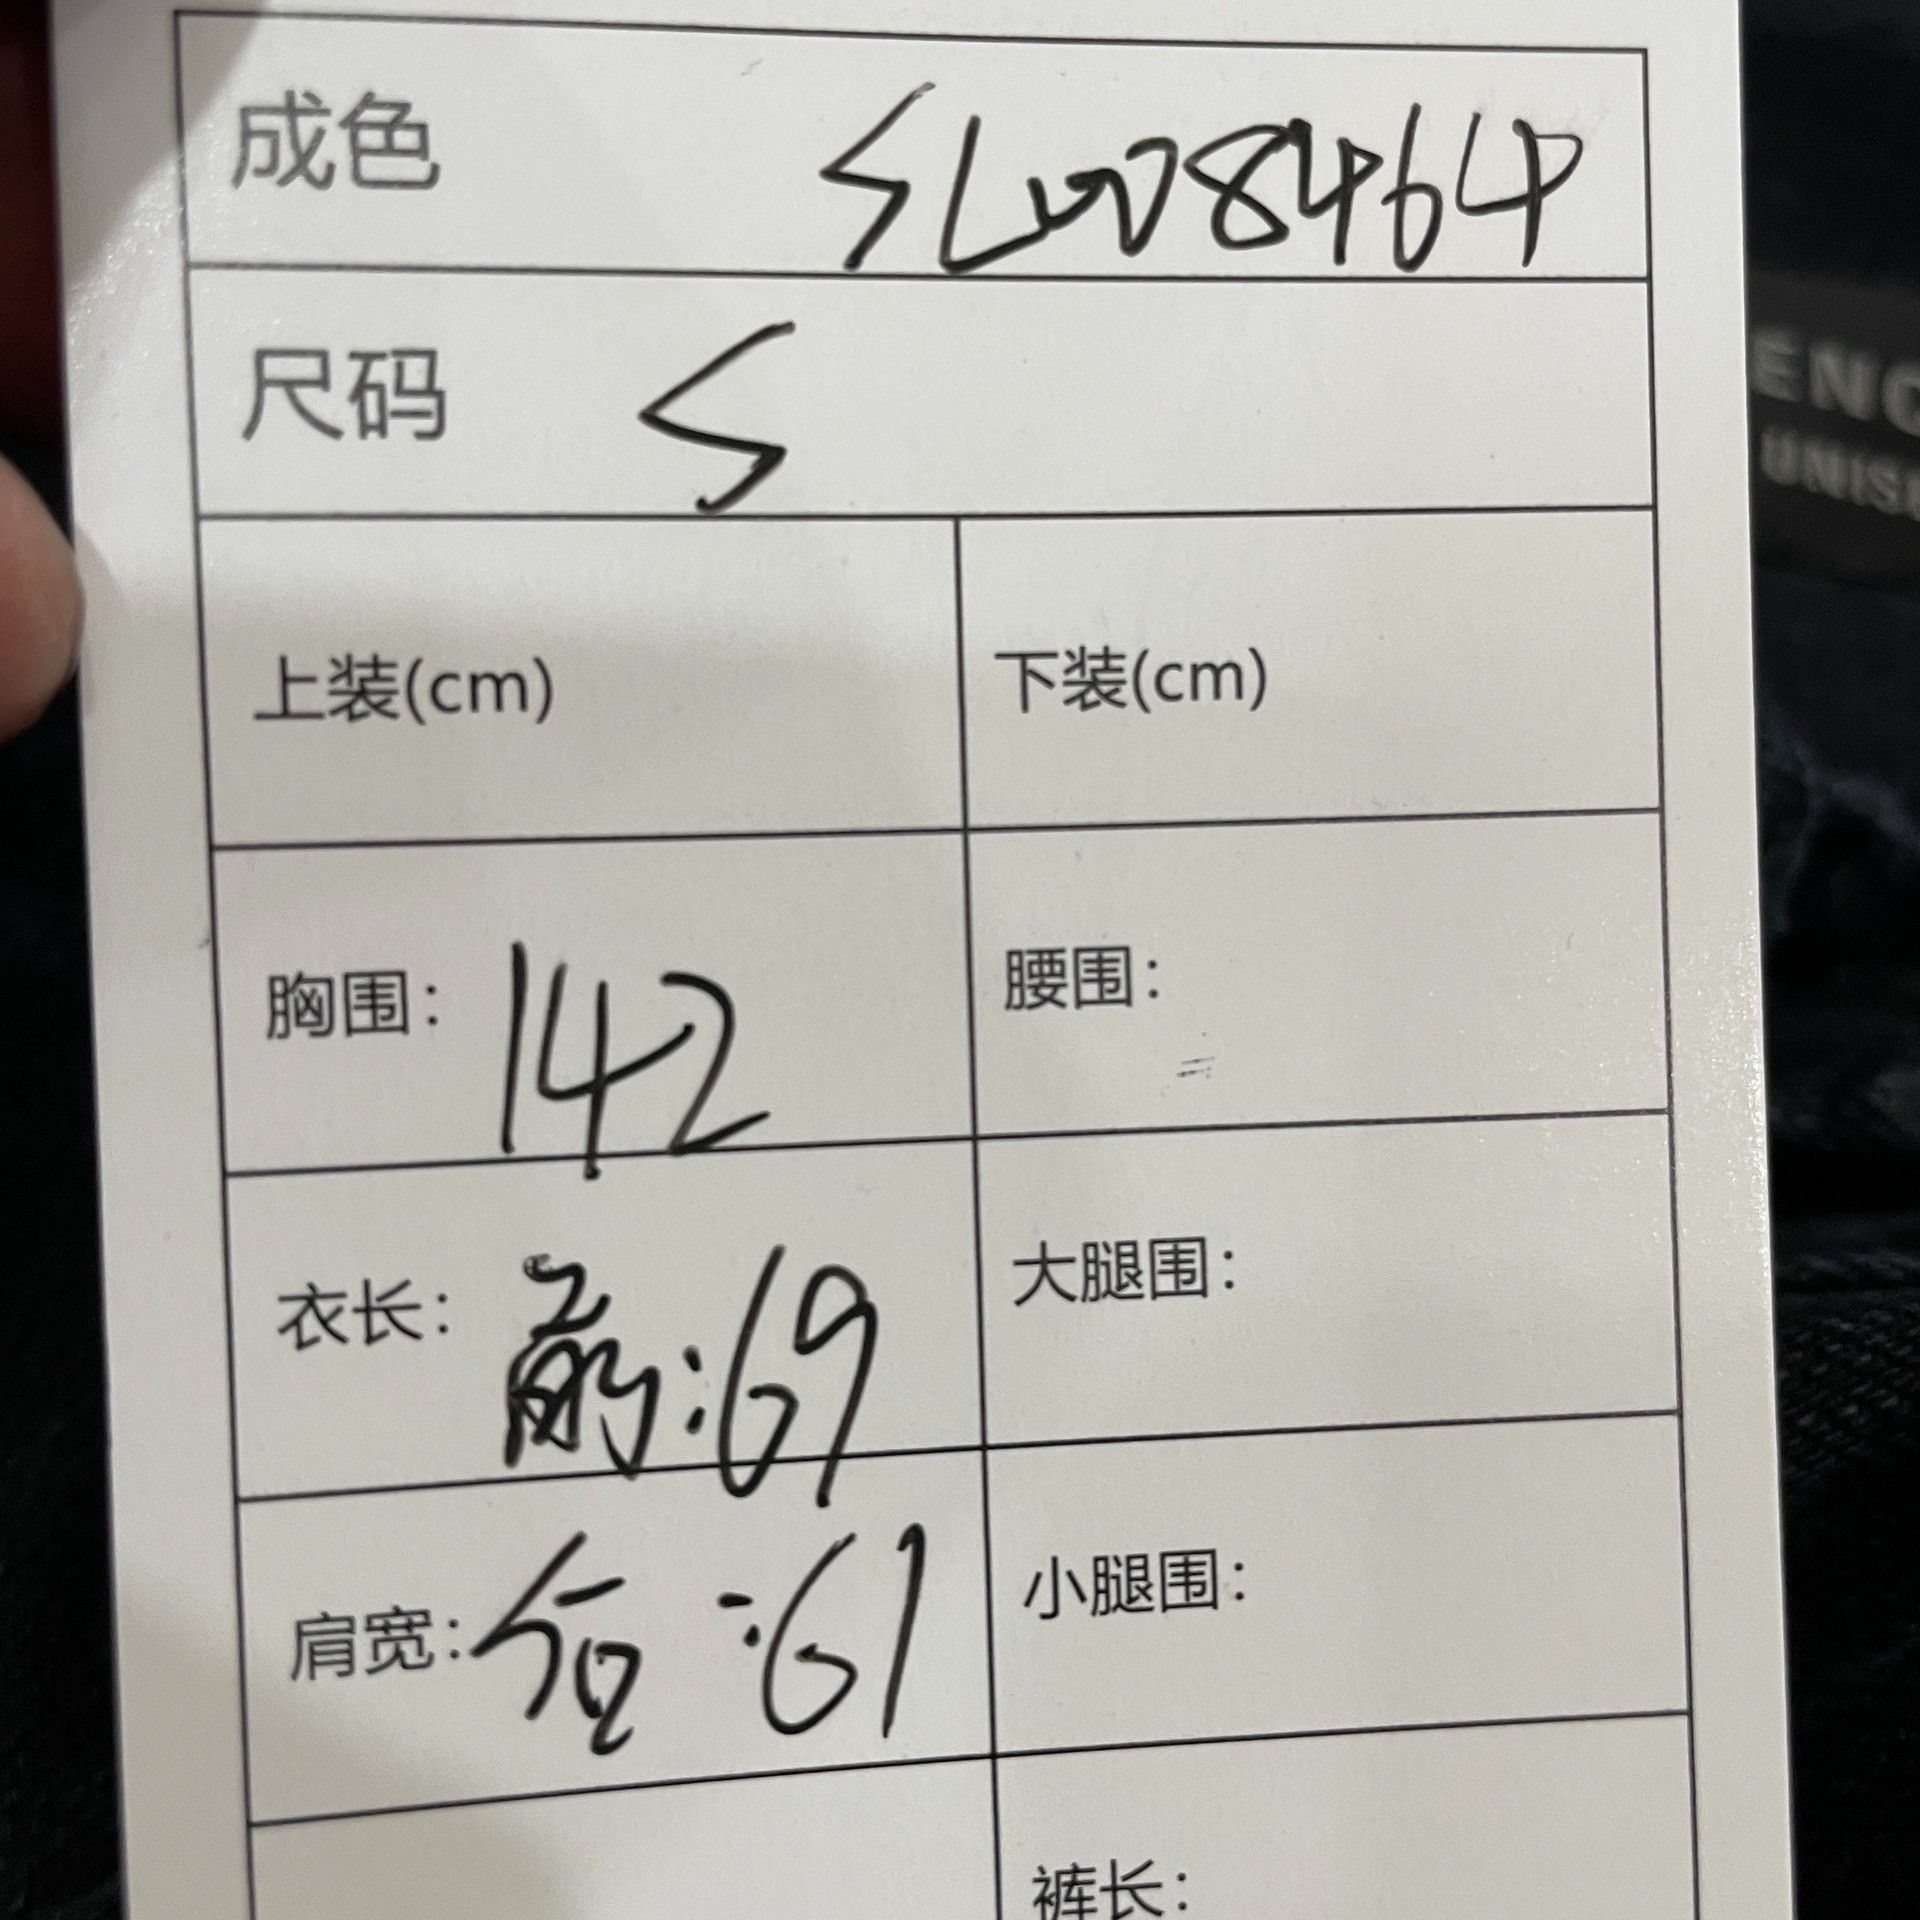 成色 SL008464
尺码 S
上装(cm) 下装(cm)
胸围：142 腰围：
衣长：前:69 大腿围：
肩宽：后:61 小腿围：
裤长：
ENG
UNIS